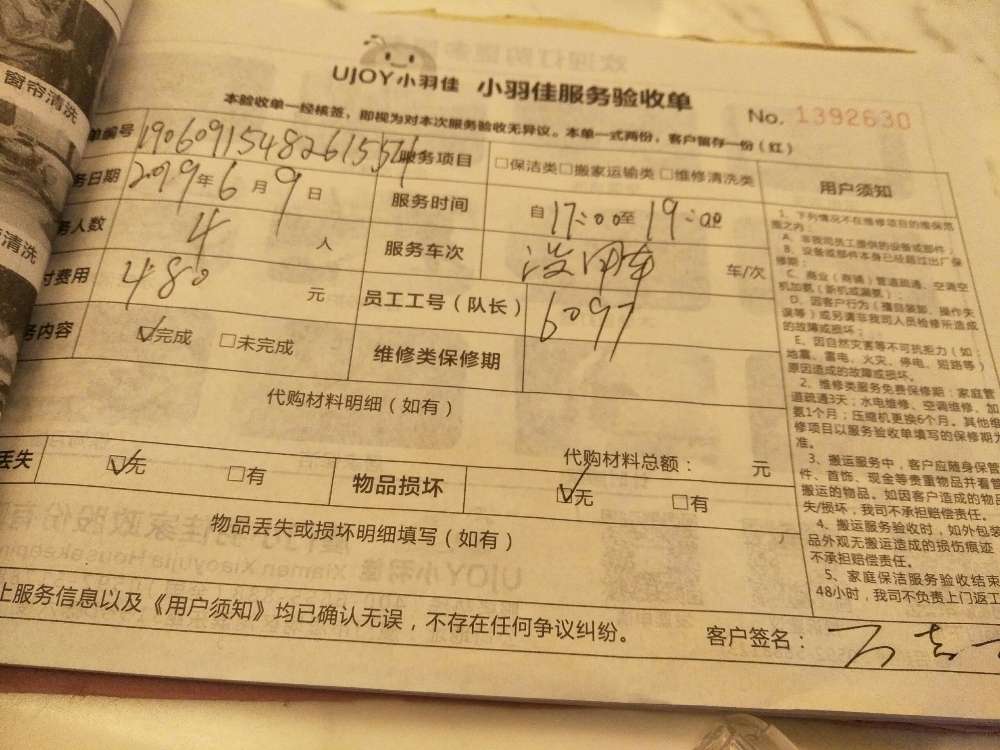 窗帘清洗
清洗
UJOY小羽佳 小羽佳服务验收单
No. 1392630
本验收单一经核签，即视为对本次服务验收无异议。本单一式两份，客户留存一份（红）
单编号 服务项目 □保洁类□搬家运输类□维修清洗类
务日期 2019年6月9日 服务时间 自17:00至19:00
务人数 4 人 服务车次 没用车 车/次
付费用 480 元 员工工号（队长） 6097
务内容 ☑完成 □未完成 维修类保修期
代购材料明细（如有）
代购材料总额： 元
丢失 ☑无 □有 物品损坏 ☑无 □有
物品丢失或损坏明细填写（如有）
上服务信息以及《用户须知》均已确认无误，不存在任何争议纠纷。
客户签名：
用户须知
1、下列情况不在维修项目的维保范
围之内：
A、非我司员工提供的设备或部件；
B、设备或部件本身已经超过出厂保
修期；
C、商业（商铺）管道疏通、空调空
机加氨（新机或漏氨）；
D、因客户行为（擅自装卸、操作失
误等）或另请非我司人员检修所造成
的故障或损坏；
E、因自然灾害等不可抗拒力（如：
地震、雷电、火灾、停电、短路等）
原因造成的故障或损坏。
2、维修类服务免费保修期：家庭管
道疏通3天；水电维修、空调维修、加
氨1个月；压缩机更换6个月。其他维
修项目以服务验收单填写的保修期为
准。
3、搬运服务中，客户应随身保管
件、首饰、现金等贵重物品并看管
搬运的物品。如因客户造成的物品
失/损坏，我司不承担赔偿责任。
4、搬运服务验收时，如外包装
品外观无搬运造成的损伤痕迹
不承担赔偿责任。
5、家庭保洁服务验收结束
48小时，我司不负责上门返工